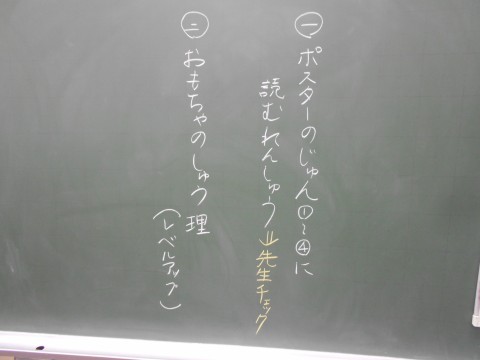 ㊀ポスターのじゅん①~④に
読むれんしゅう⇒先生チェック
㊁おもちゃのしゅう理
(レベルアップ)